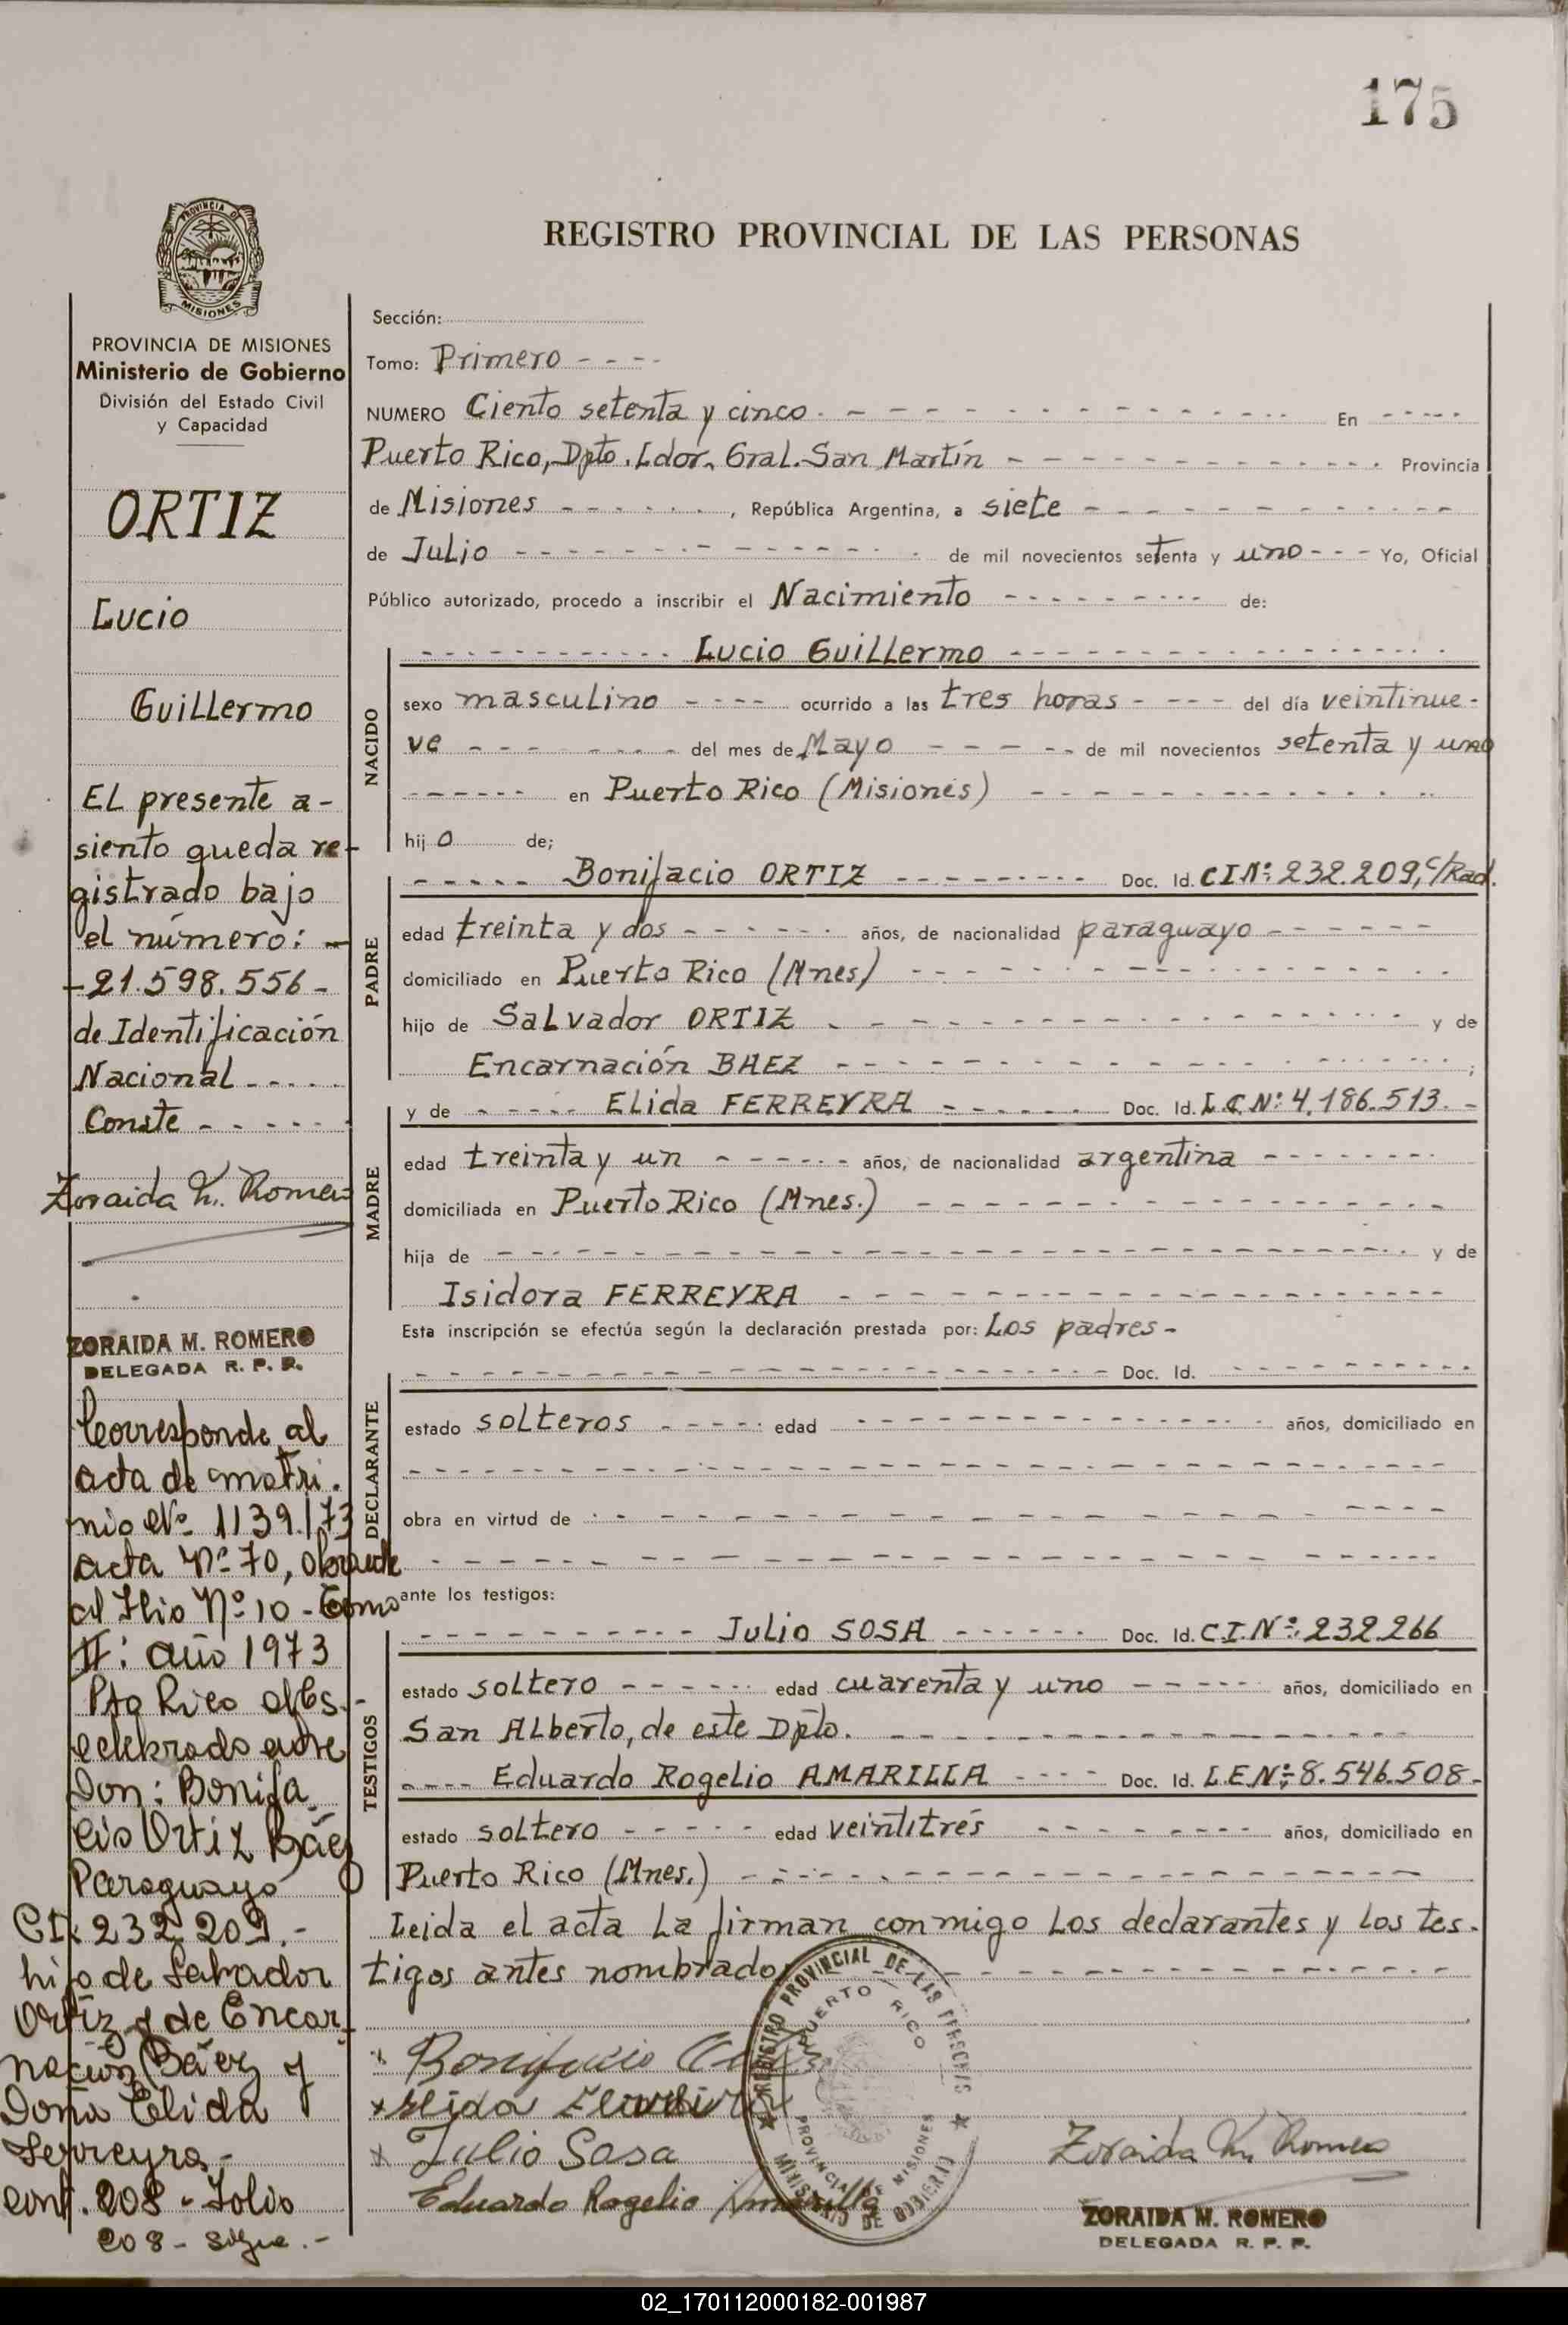 175
PROVINCIA DE
MISIONES
REGISTRO PROVINCIAL DE LAS PERSONAS
PROVINCIA DE MISIONES
Ministerio de Gobierno
División del Estado Civil
y Capacidad
ORTIZ
Lucio
Guillermo
El presente a-
siento queda re-
gistrado bajo
el número: -
-21.598.556-
de Identificación
Nacional - - - - -
Conste - - - - - -
Zoraida M. Romero
ZORAIDA M. ROMERO
DELEGADA R. P. P.
Corresponde al
acta de matri.
nio Nº 1139/73
acta Nº 70, obrante
al folio Nº 10 - Tomo
II: año 1973
Pto Rico
celebrado entre
Don: Bonifa
cio Ortiz Báez
Paraguayo
CI: 232.209.-
hijo de Salvador
Ortiz y de Encar-
nación Báez y
Doña Elida
Ferreyra.-
conf. 208 - Folio
208 - sigue.-
Sección:
Tomo: Primero - - - -
NUMERO Ciento setenta y cinco - - - - En - - - -
Puerto Rico, Dpto. Ldor. Gral. San Martín - - - - Provincia
de Misiones - - - -, República Argentina, a siete - - - -
de Julio - - - - de mil novecientos setenta y uno - - - Yo, Oficial
Público autorizado, procedo a inscribir el Nacimiento - - - - de:
NACIDO
- - - - Lucio Guillermo - - - -
sexo masculino - - - - ocurrido a las tres horas - - - - del día veintinue-
ve - - - - del mes de Mayo - - - - de mil novecientos setenta y uno
- - - - en Puerto Rico (Misiones) - - - -
hij o de;
PADRE
- - - - Bonifacio ORTIZ - - - - Doc. Id. CI Nº: 232.209, c/Rad.
edad treinta y dos - - - - años, de nacionalidad paraguayo - - - -
domiciliado en Puerto Rico (Mnes) - - - -
hijo de Salvador ORTIZ - - - - y de
Encarnación BAEZ - - - - ;
MADRE
y de - - - - Elida FERREYRA - - - - Doc. Id. L.C. Nº: 4.186.513. -
edad treinta y un - - - - años, de nacionalidad argentina - - - -
domiciliada en Puerto Rico (Mnes.) - - - -
hija de - - - - y de
Isidora FERREYRA - - - -
Esta inscripción se efectúa según la declaración prestada por: Los padres-
DECLARANTE
- - - - Doc. Id. - - - -
estado solteros - - - - edad - - - - años, domiciliado en
- - - -
obra en virtud de - - - -
- - - -
ante los testigos:
TESTIGOS
- - - - Julio SOSA - - - - Doc. Id. C.I. Nº: 232266
estado soltero - - - - edad cuarenta y uno - - - - años, domiciliado en
San Alberto, de este Dpto. - - - -
- - - - Eduardo Rogelio AMARILLA - - - - Doc. Id. L.E Nº: 8.546.508-
estado soltero - - - - edad veintitrés - - - - años, domiciliado en
Puerto Rico (Mnes.) - - - -
Leida el acta la firman conmigo los declarantes y los tes-
tigos antes nombrados - - - -
x Bonifacio Ortiz
x Elida Ferreira
x Julio Sosa
Eduardo Rogelio Amarilla
REGISTRO PROVINCIAL DE LAS PERSONAS
PUERTO RICO
PROVINCIA DE MISIONES
MINISTERIO DE GOBIERNO
Zoraida M. Romero
ZORAIDA M. ROMERO
DELEGADA R. P. P.
02_170112000182-001987